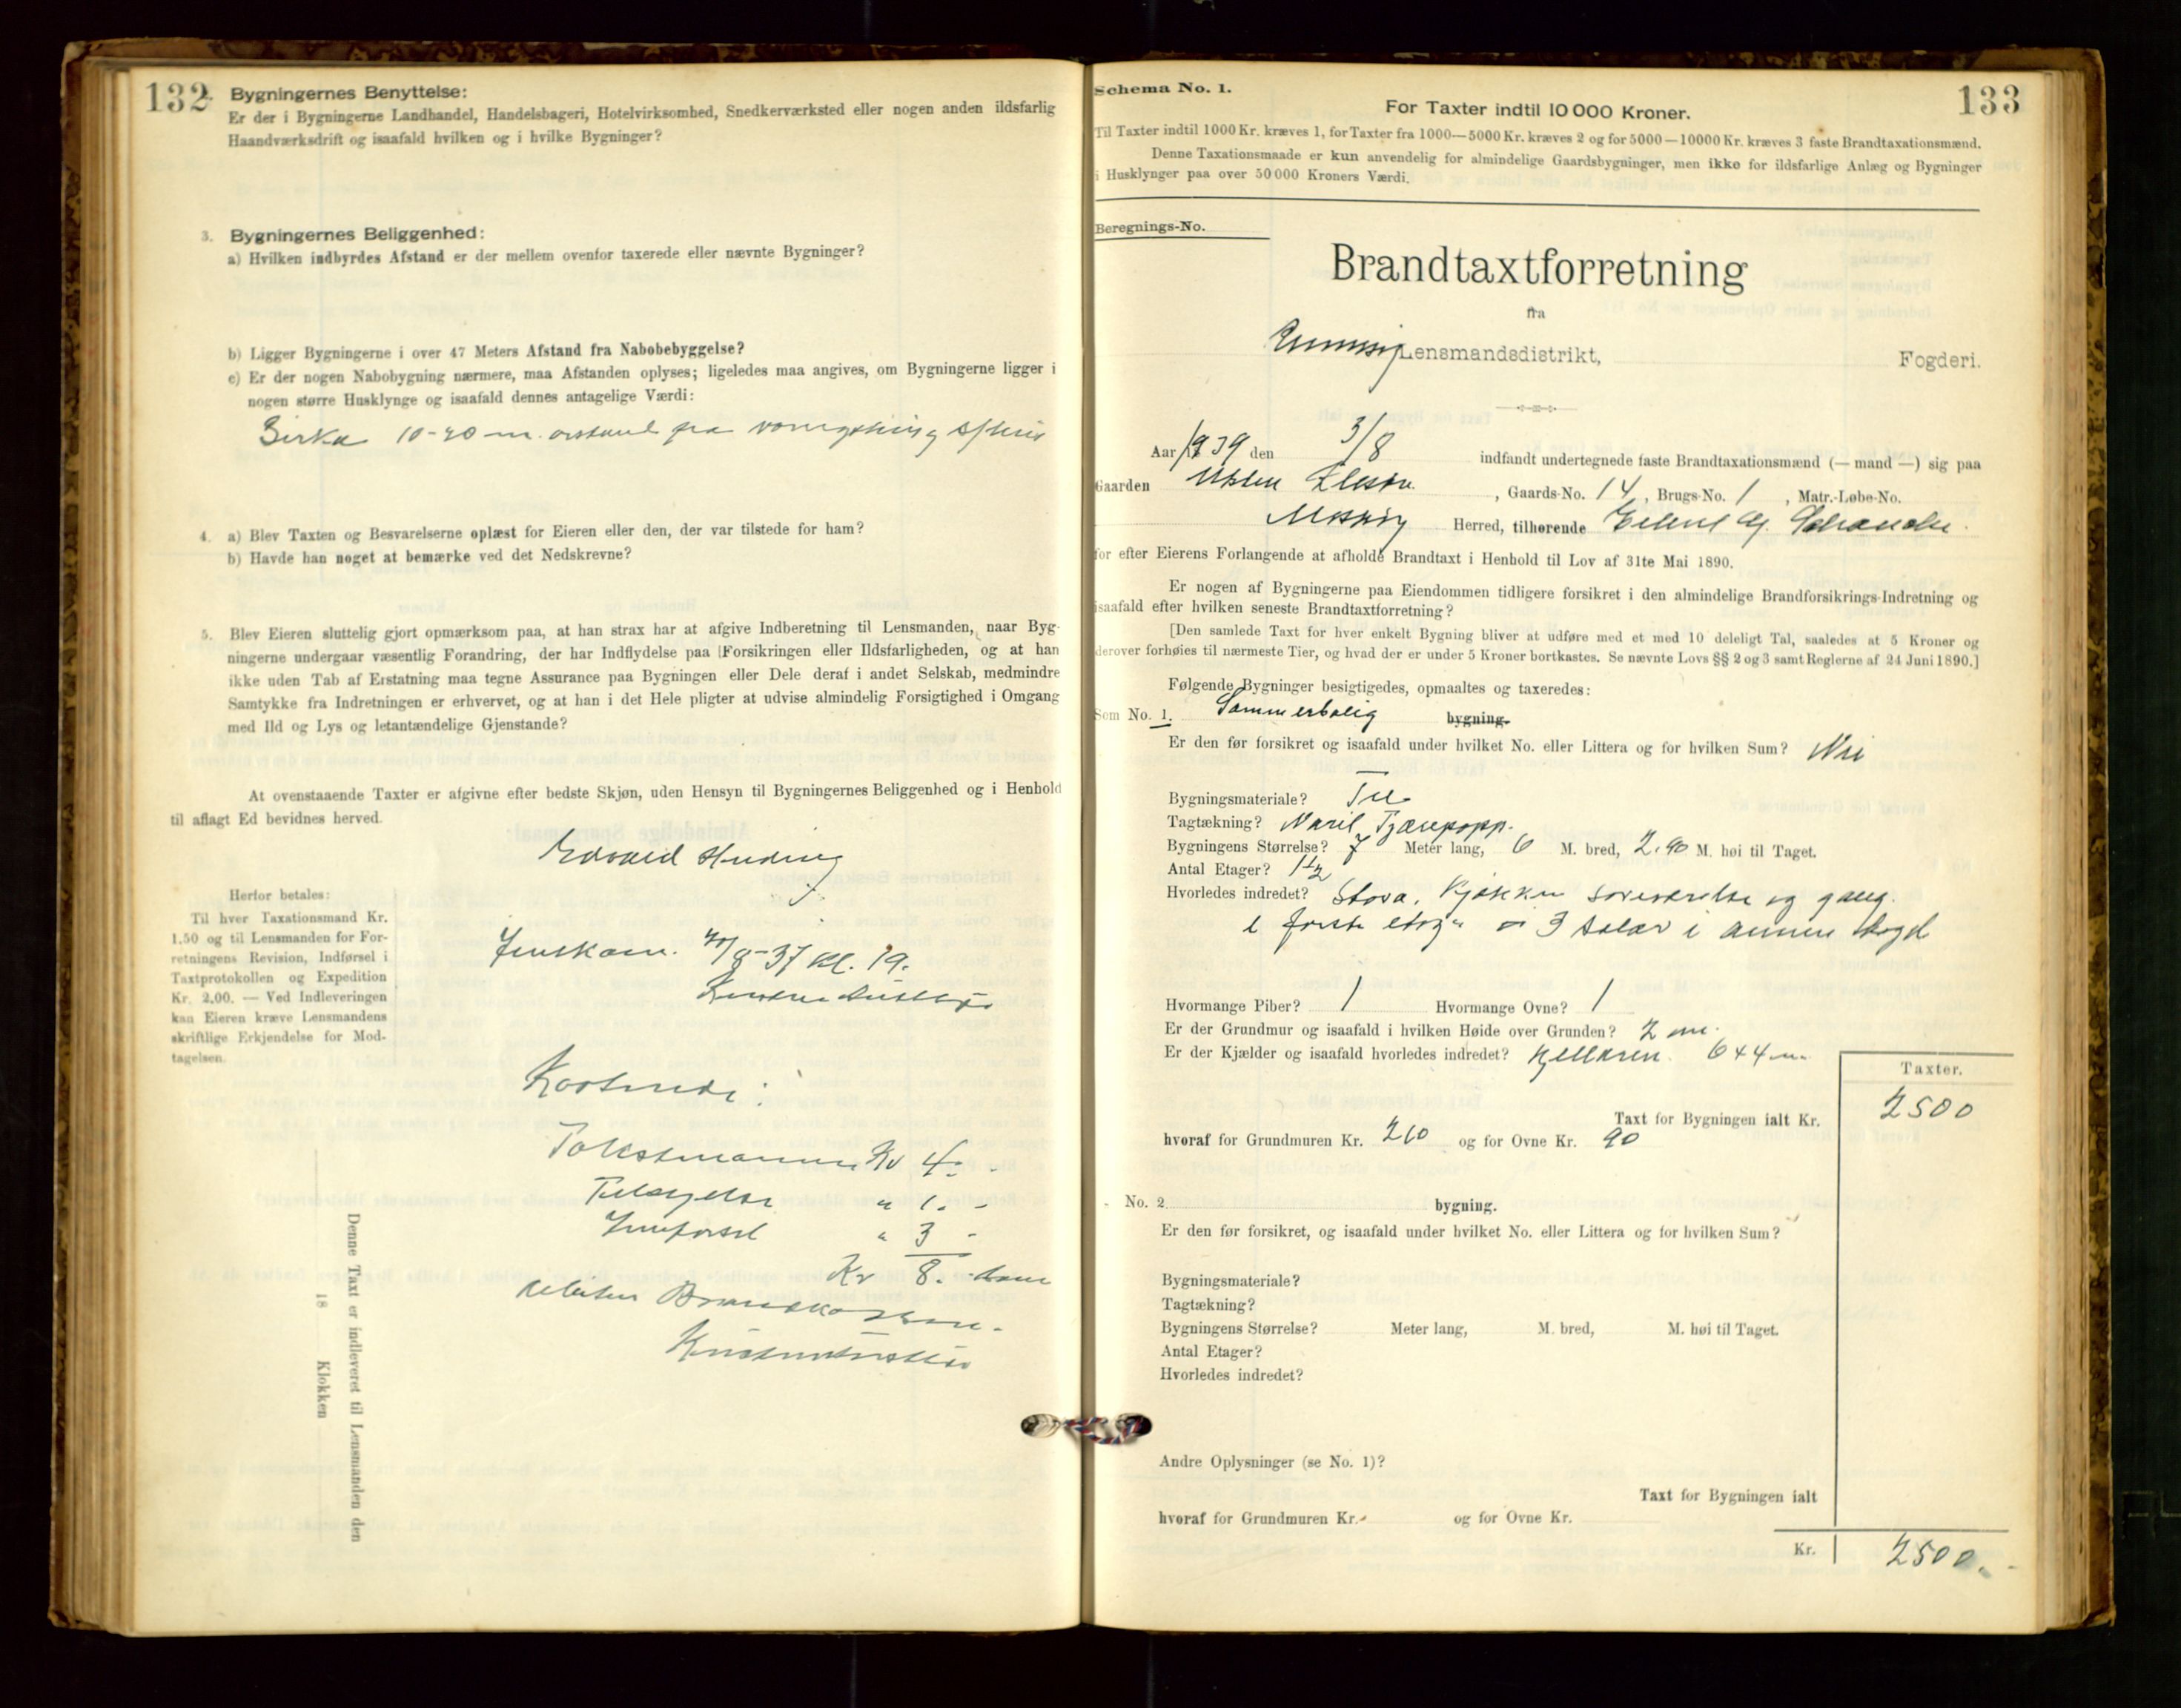 132
Bygningernes Benyttelse:
Er der i Bygningerne Landhandel, Handelsbageri, Hotelvirksomhed, Snedkerværksted eller nogen anden ildsfarlig
Haandværksdrift og isaafald hvilken og i hvilke Bygninger?
3. Bygningernes Beliggenhed:
a) Hvilken indbyrdes Afstand er der mellem ovenfor taxerede eller nævnte Bygninger?
b) Ligger Bygningerne i over 47 Meters Afstand fra Nabobebyggelse?
c) Er der nogen Nabobygning nærmere, maa Afstanden oplyses; ligeledes maa angives, om Bygningerne ligger i
nogen større Husklynge og isaafald dennes antagelige Værdi:
Sirka 10-20 m. avstand fra
4. a) Blev Taxten og Besvarelserne oplæst for Eieren eller den, der var tilstede for ham?
b) Havde han noget at bemærke ved det Nedskrevne?
5. Blev Eieren sluttelig gjort opmærksom paa, at han strax har at afgive Indberetning til Lensmanden, naar Byg-
ningerne undergaar væsentlig Forandring, der har Indflydelse paa Forsikringen eller Ildsfarligheden, og at han
ikke uden Tab af Erstatning maa tegne Assurance paa Bygningen eller Dele deraf i andet Selskab, medmindre
Samtykke fra Indretningen er erhvervet, og at han i det Hele pligter at udvise almindelig Forsigtighed i Omgang
med Ild og Lys og letantændelige Gjenstande?
At ovenstaaende Taxter er afgivne efter bedste Skjøn, uden Hensyn til Bygningernes Beliggenhed og i Henhold
til aflagt Ed bevidnes herved.
Edvard
Kl. 19.
Herfor betales:
Til hver Taxationsmand Kr.
1.50 og til Lensmanden for For-
retningens Revision, Indførsel i
Taxtprotokollen og Expedition
Kr. 2.00. — Ved Indleveringen
kan Eieren kræve Lensmandens
skriftlige Erkjendelse for Mod-
tagelsen.
Kostnade:
Takstmannen Kr 4. -
" 1. -
Innførsel " 3 -
Kr 8. -
Denne Taxt er indleveret til Lensmanden den
18 Klokken
133
Schema No. 1.
For Taxter indtil 10 000 Kroner.
Til Taxter indtil 1000 Kr. kræves 1, for Taxter fra 1000—5000 Kr. kræves 2 og for 5000—10000 Kr. kræves 3 faste Brandtaxationsmænd.
Denne Taxationsmaade er kun anvendelig for almindelige Gaardsbygninger, men ikke for ildsfarlige Anlæg og Bygninger
i Husklynger paa over 50 000 Kroners Værdi.
Beregnings-No.
Brandtaxtforretning
fra
Lensmandsdistrikt, Fogderi.
Aar 1939 den 3/8 indfandt undertegnede faste Brandtaxationsmænd (— mand —) sig paa
Gaarden , Gaards-No. 14, Brugs-No. 1 , Matr.-Løbe-No.
Herred, tilhørende
for efter Eierens Forlangende at afholde Brandtaxt i Henhold til Lov af 31te Mai 1890.
Er nogen af Bygningerne paa Eiendommen tidligere forsikret i den almindelige Brandforsikrings-Indretning og
isaafald efter hvilken seneste Brandtaxtforretning?
[Den samlede Taxt for hver enkelt Bygning bliver at udføre med et med 10 deleligt Tal, saaledes at 5 Kroner og
derover forhøies til nærmeste Tier, og hvad der er under 5 Kroner bortkastes. Se nævnte Lovs §§ 2 og 3 samt Reglerne af 24 Juni 1890.]
Følgende Bygninger besigtigedes, opmaaltes og taxeredes:
Som No. 1. Sommerbolig bygning.
Er den før forsikret og isaafald under hvilket No. eller Littera og for hvilken Sum? Nei
Bygningsmateriale? Tre
Tagtækning? Tjærepapp.
Bygningens Størrelse? 7 Meter lang, 6 M. bred, 2.90 M. høi til Taget.
Antal Etager? 1½
Hvorledes indredet? Stova, Kjøkken soveværelse og gang.
i første etage og 3 salar i annen etage
Hvormange Piber? 1 Hvormange Ovne? 1
Er der Grundmur og isaafald i hvilken Høide over Grunden? 2 m.
Er der Kjælder og isaafald hvorledes indredet? Kjellaren 6 x 4 m
Taxter.
Taxt for Bygningen ialt Kr. 2500
hvoraf for Grundmuren Kr. 210 og for Ovne Kr. 90
No. 2. bygning.
Er den før forsikret, og isaafald under hvilket No. eller Littera og for hvilken Sum?
Bygningsmateriale?
Tagtækning?
Bygningens Størrelse? Meter lang, M. bred, M. høi til Taget.
Antal Etager?
Hvorledes indredet?
Andre Oplysninger (se No. 1)?
Taxt for Bygningen ialt
hvoraf for Grundmuren Kr. og for Ovne Kr.
Kr. 2500.-